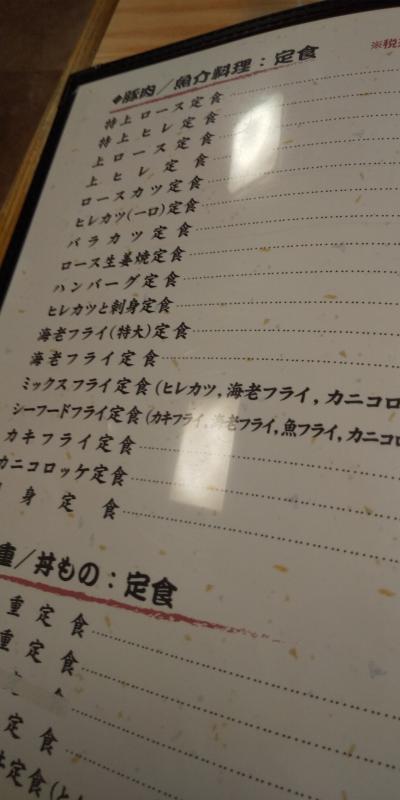 ◆豚肉／魚介料理：定食
※税
特上ロース定食
特上ヒレ定食
上ロース定食
上ヒレ定食
ロースカツ定食
ヒレカツ(一口)定食
バラカツ定食
ロース生姜焼定食
ハンバーグ定食
ヒレカツと刺身定食
海老フライ(特大)定食
海老フライ定食
ミックスフライ定食(ヒレカツ,海老フライ,カニコロ
シーフードフライ定食(カキフライ,海老フライ,魚フライ,カニコロ
カキフライ定食
カニコロッケ定食
身定食
重／丼もの：定食
重定食
重定食
定食
定食(と